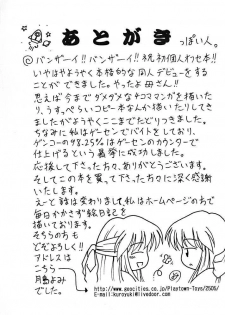 あとがき っぽい人。
◎バンザーイ!!バンザーイ!!祝初個人オフセ本!!
いやはやようやく本格的な同人デビューをする
ことができました。やったよ母さん!!
思えば今までダメダメな4コママンガを描いた
り、うすっぺらいコピー本なんか描いたりしてき
ましたがようやくここまでたどりつきました。
ちなみに私はゲーセンでバイトをしており、
ゲンコーの98.25%はゲーセンのカウンターで
仕上げるという義挙に成功しました。
応援して下さった方、ありがとうございます。
そしてこの本を買って下さった方々に深く感謝
いたします。
えーと話は変わりまして私はホームページの方で
毎日やかさず絵日記を
描いております。
そちらの方も
どぞよろしく!!
アドレスは
こちら
月島よみ
でした。
http://www.geocities.co.jp/Playtown-Toys/2505/
E-mail:kuroyuki@livedoor.com